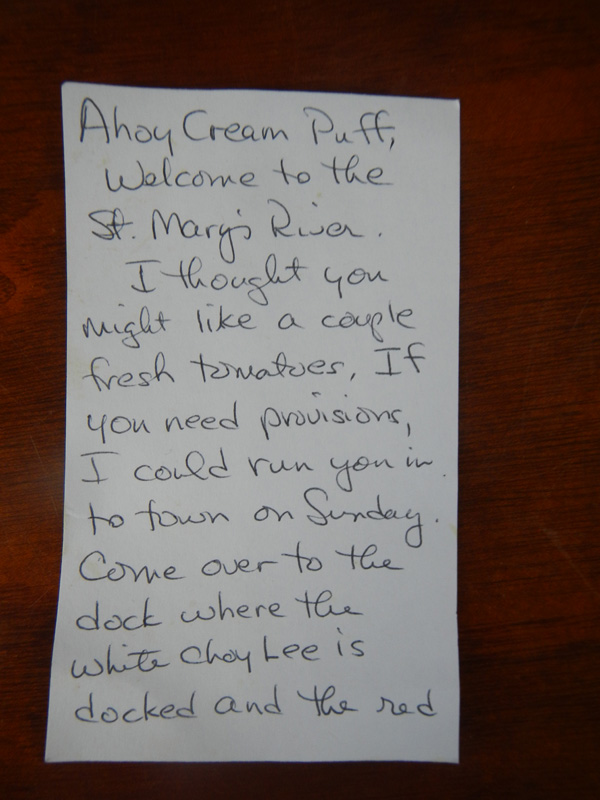 Ahoy Cream Puff,
Welcome to the
St. Mary's River.
I thought you
might like a couple
fresh tomatoes, If
you need provisions,
I could run you in
to town on Sunday.
Come over to the
dock where the
white Choy Lee is
docked and the red